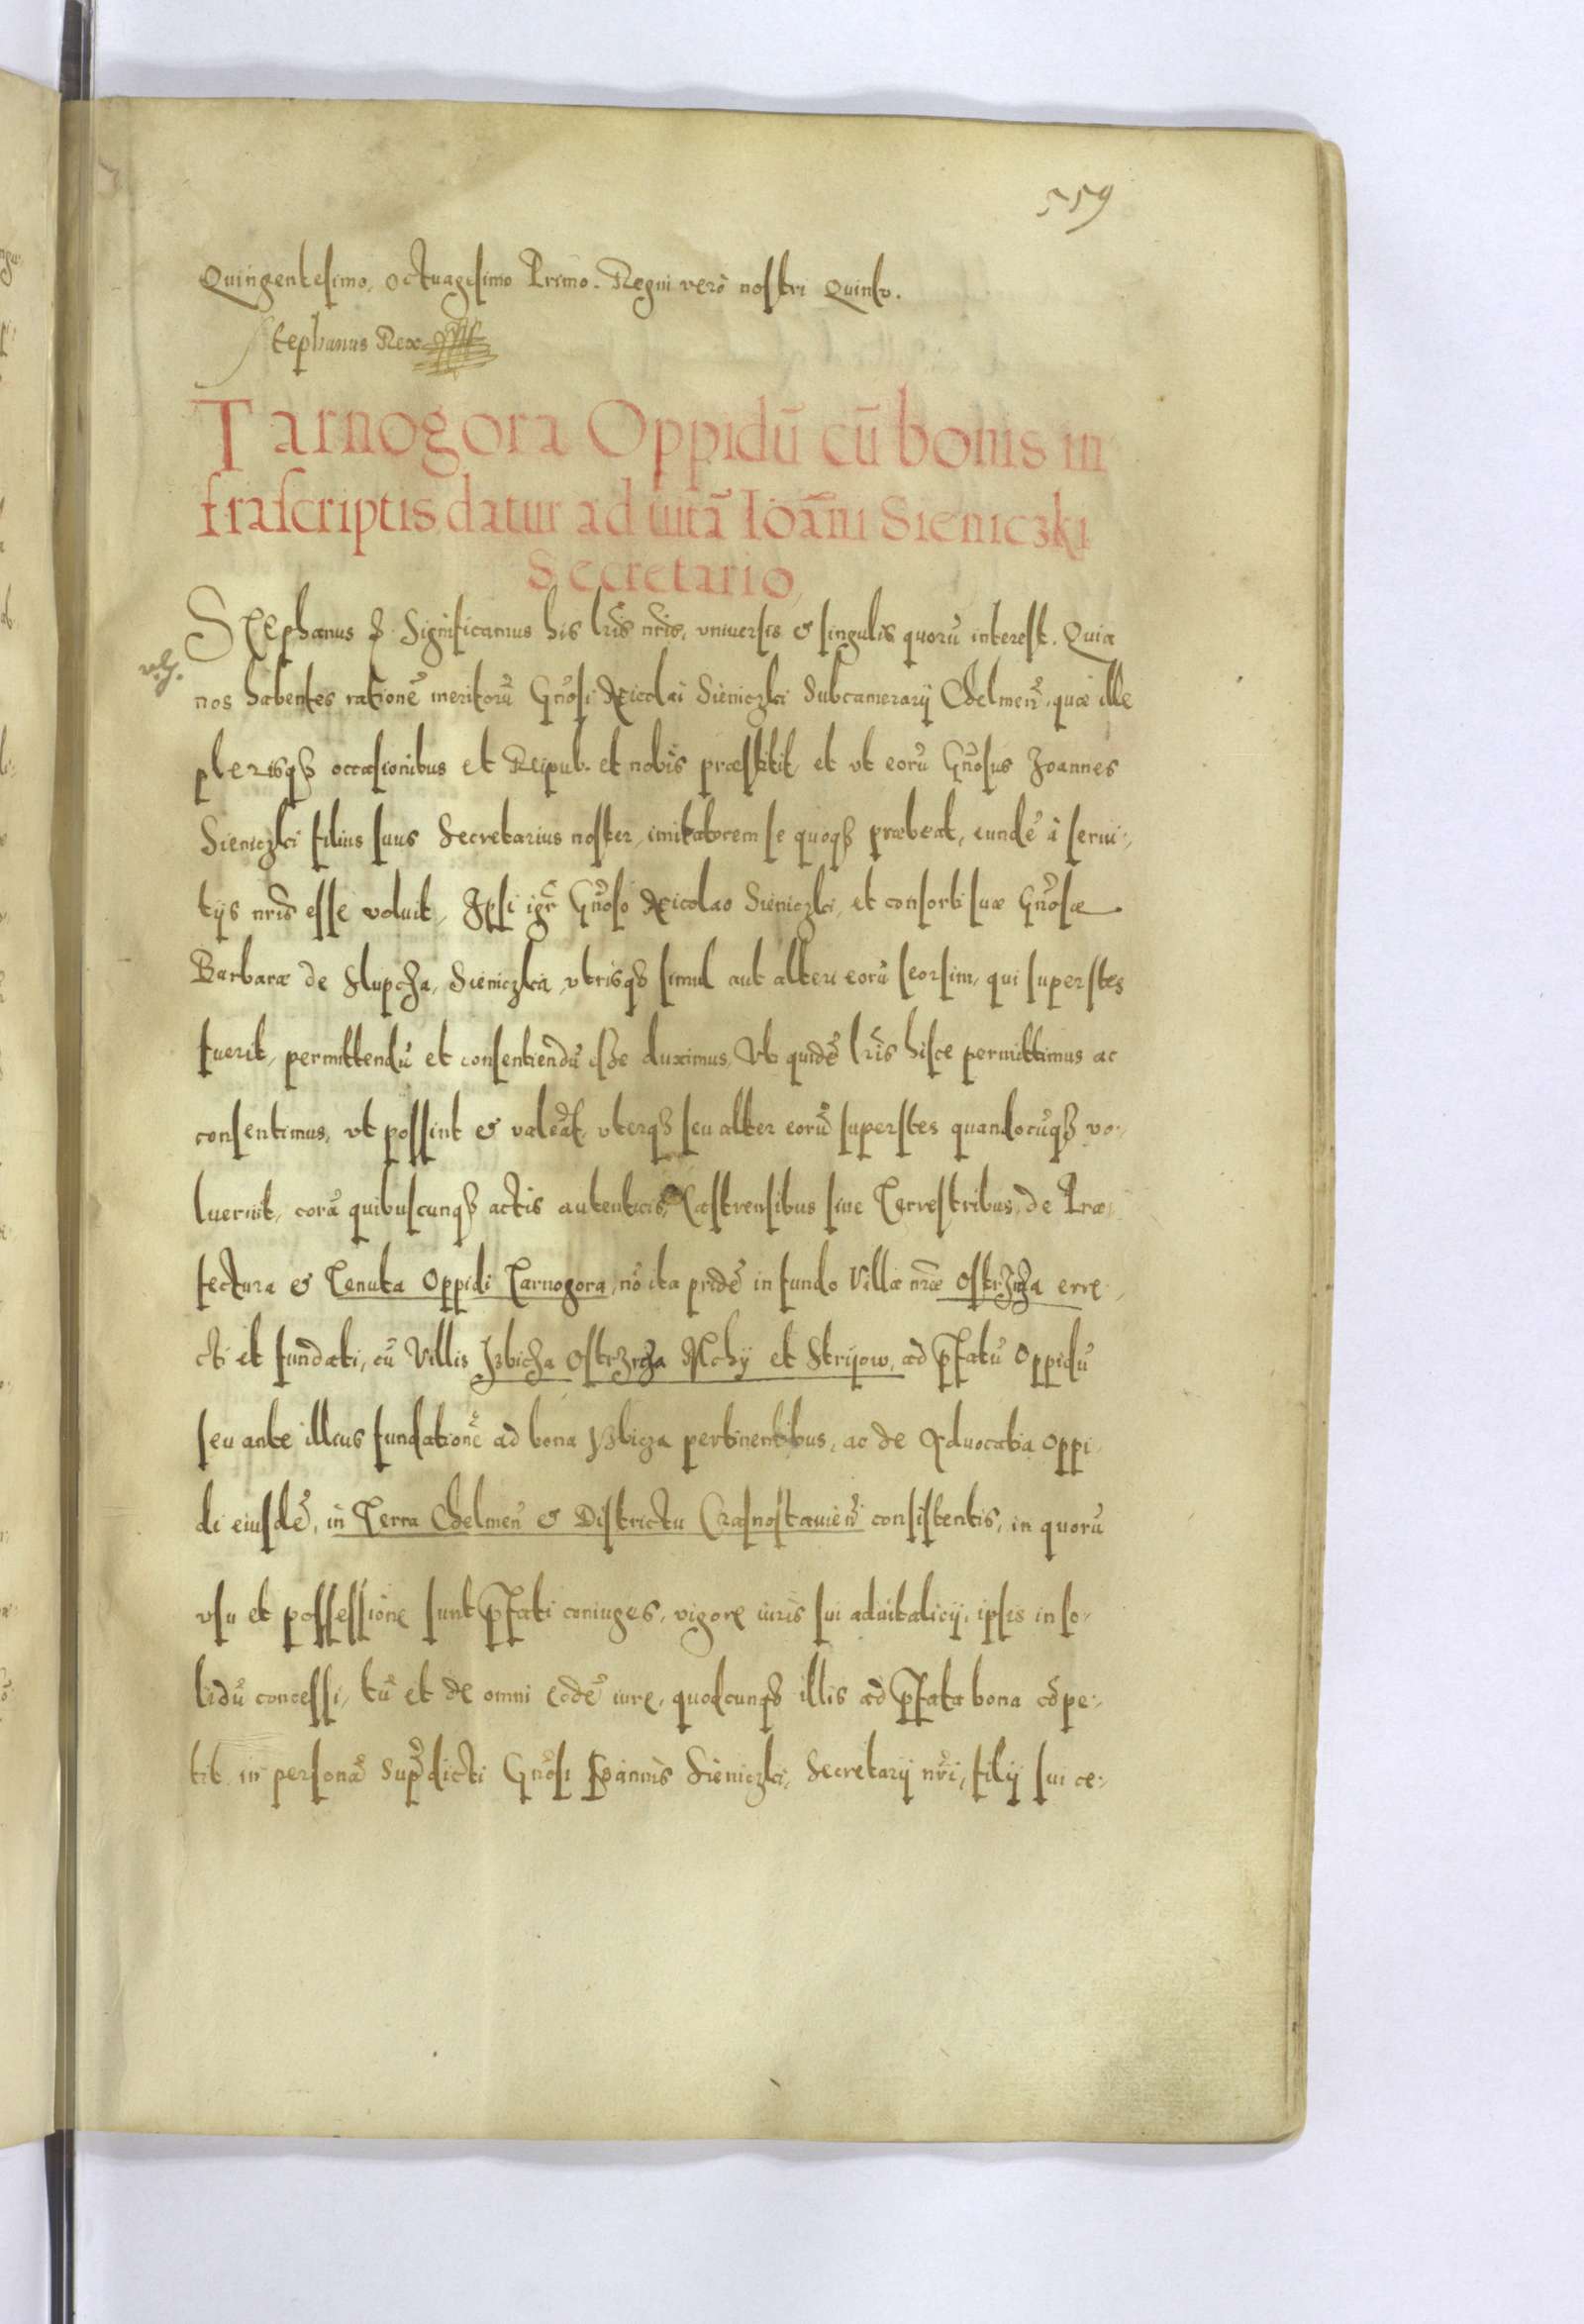 559
Quingentesimo, octuagesimo Primo. Regni verò nostri Quinto.
Stephanus Rex
Tarnogora Oppidū cū bonis in
frascriptis datur ad uitā Ioāni Sieniczki
Secretario,
STEphanus &. Significamus his lrīs nrīs, vniuersis & singulis quorū interest. Quia
nos habentes rationē meritorū Gnōsi Nicolai Sieniczki Subcamerarij Chelmen̄, quæ ille
plerisq3 occasionibus et Reipub. et nobis præstitit, et vt eorū Gnōsus Joannes
Sieniczki filius suus Secretarius noster, imitatorem se quoq3 præbeat, eundē à serui:,
tijs nrīs esse voluit, Jpsi igr̄ Gnōso Nicolao Sieniczki, et consorti suæ Gnōsæ
Barbaræ de Slupcza, Sieniczka, vtrisq3 simul aut alteri eorū seorsim, qui superstes
fuerit, permittendū et consentiendū esse duximus, Vt quidē lrīs hisce permittimus ac
consentimus, vt possint & valeāt, vterq3 seu alter eorū superstes quandocūq3 vo:,
luerint, corā quibuscunq3 actis autenticis, Castrensibus siue Terrestribus, de Præ:,
fectura & Tenuta Oppidi Tarnogora, nō ita pridē in fundo Villæ nrǣ Ostrzicza erre:,
cti et fundati, cū Villis Jzbicza Ostrzicza Mchy et Strijow, ad pfatū Oppidū
seu ante illius fundationē ad bona Jzbicza pertinentibus, ac de Aduocatia Oppi:,
di eiusdē, in Terra Chelmen̄ & Districtu Crasnostauien̄ consistentis, in quorū
vsu et possessione sunt pfati coniuges, vigore iuris sui aduitalicij, ipsis in so:,
lidū concessi, tū et de omni eodē iure, quodcunq3 illis ad pfata bona cōpe:,
tit in personā supdicti Gnōsi Joannis Sieniczki, Secretarij nrī, filij sui ce:,